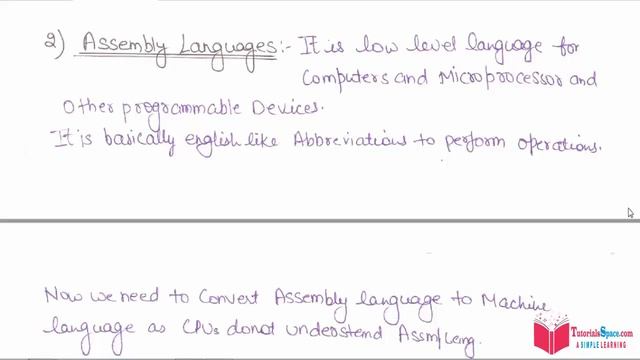 2) Assembly Languages:- It is low level language for
Computers and Microprocessor and
Other programmable Devices.
It is basically english like Abbreviations to perform operations.
Now we need to Convert Assembly language to Machine
language as CPUs donot understand
TutorialsSpace.com
A SIMPLE LEARNING